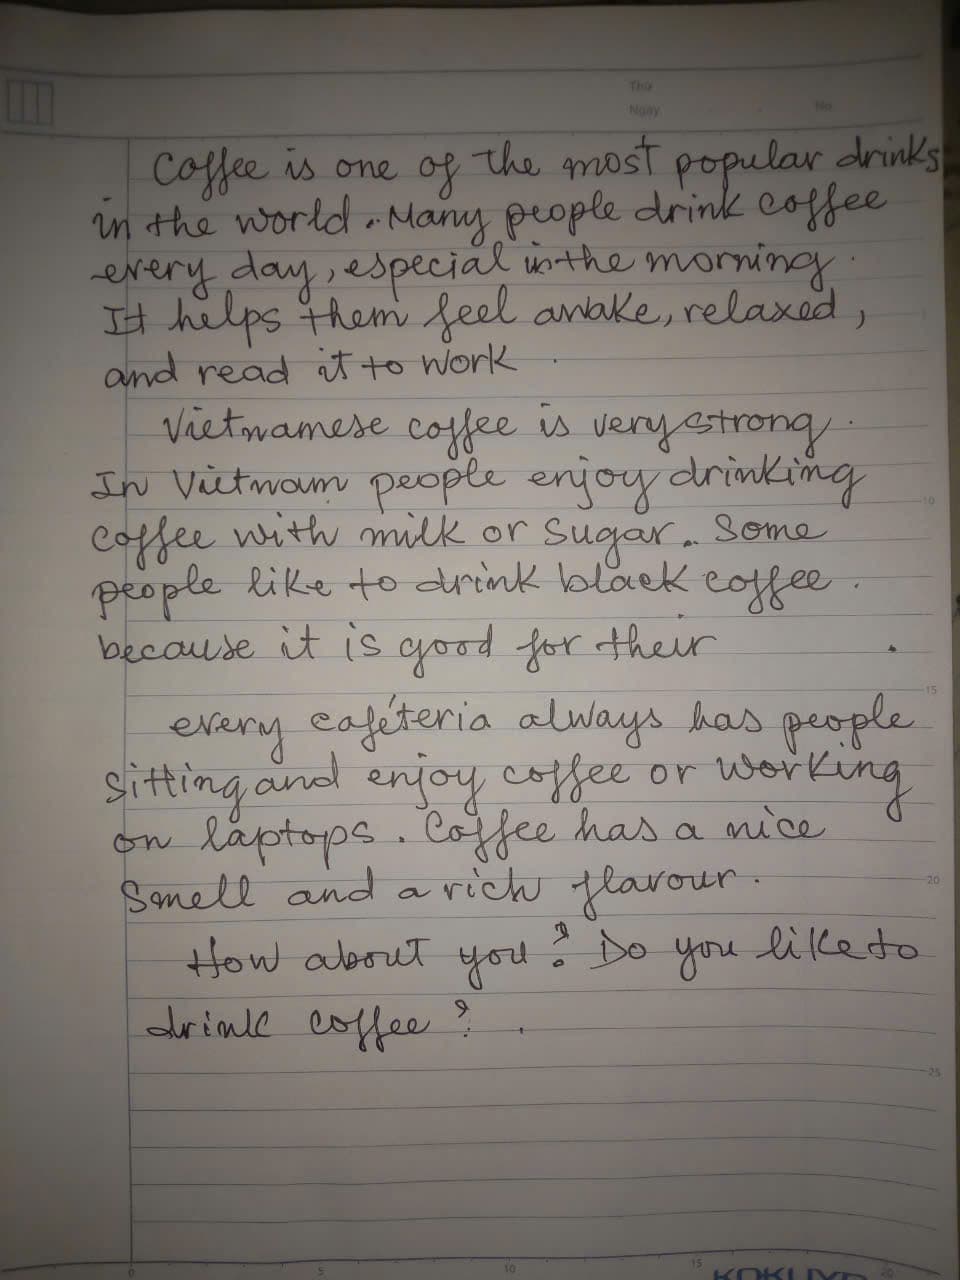 Thứ
Ngày No.
Coffee is one of the most popular drinks
in the world. Many people drink coffee
every day, especial in the morning.
It helps them feel awake, relaxed,
and read it to work.
Vietnamese coffee is very strong.
In Vietnam people enjoy drinking
coffee with milk or sugar. Some
people like to drink black coffee.
because it is good for their .
every caféteria always has people
sitting and enjoy coffee or working
on laptops. Coffee has a nice
smell and a rich flavour.
How about you? Do you like to
drink coffee? .
10
15
20
25
0 5 10 15 20
KOKUYO